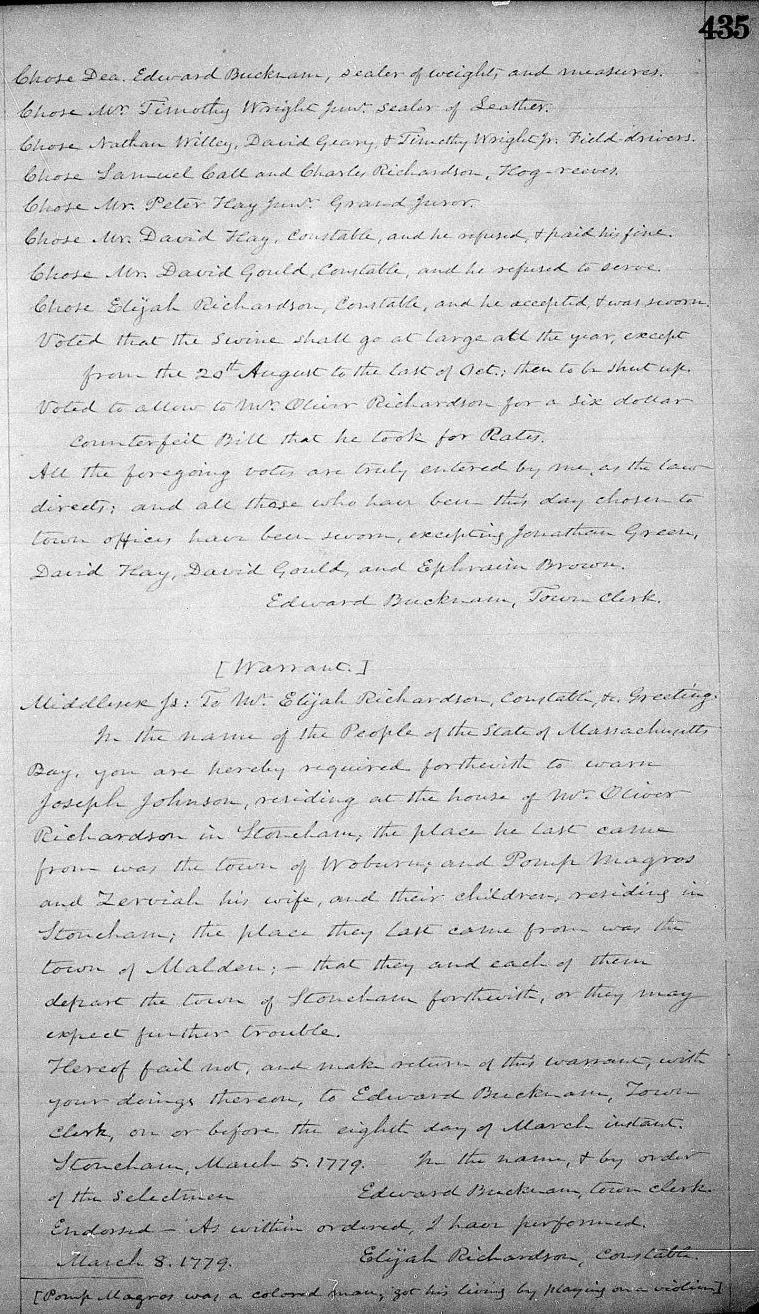 435
Chose Dea. Edward Bucknam, sealer of weights and measures.
Chose Mr. Timothy Wright Junr. sealer of Leather.
Chose Nathan Willey, David Geary, & Timothy Wright Jr. Field-drivers.
Chose Samuel Call and Charles Richardson, Hog-reeves.
Chose Mr. Peter Hay Junr. Grand Juror.
Chose Mr. David Hay, Constable, and he refused, & paid his fine.
Chose Mr. David Gould, Constable, and he refused to serve.
Chose Elijah Richardson, Constable, and he accepted, & was sworn.
Voted that the Swine shall go at large all the year, except
from the 20th August to the last of Oct.; then to be shut up.
Voted to allow to Mr. Oliver Richardson for a six dollar
Counterfeit Bill that he took for Rates.
All the foregoing votes are truly entered by me, as the law
directs; and all those who have been this day chosen to
town offices have been sworn, excepting Jonathan Green,
David Hay, David Gould, and Ephraim Brown.
Edward Bucknam, Town Clerk.
[Warrant.]
Middlesex ss: To Mr. Elijah Richardson, Constable, &c. Greeting.
In the name of the People of the State of Massachusetts
Bay, you are hereby required forthwith to warn
Joseph Johnson, residing at the house of Mr. Oliver
Richardson in Stoneham, the place he last came
from was the town of Woburn; and Pomp Magros
and Zerviah his wife, and their children, residing in
Stoneham; the place they last came from was the
town of Malden; — that they and each of them
depart the town of Stoneham forthwith, or they may
expect further trouble.
Hereof fail not, and make return of this warrant, with
your doings thereon, to Edward Bucknam, Town
Clerk, on or before the eighth day of March instant.
Stoneham, March 5. 1779. In the name, & by order
of the Selectmen Edward Bucknam, town clerk.
Endorsed — As within ordered, I have performed.
March 8. 1779. Elijah Richardson, Constable.
[Pomp Magros was a colored man, got his living by playing on a violin]